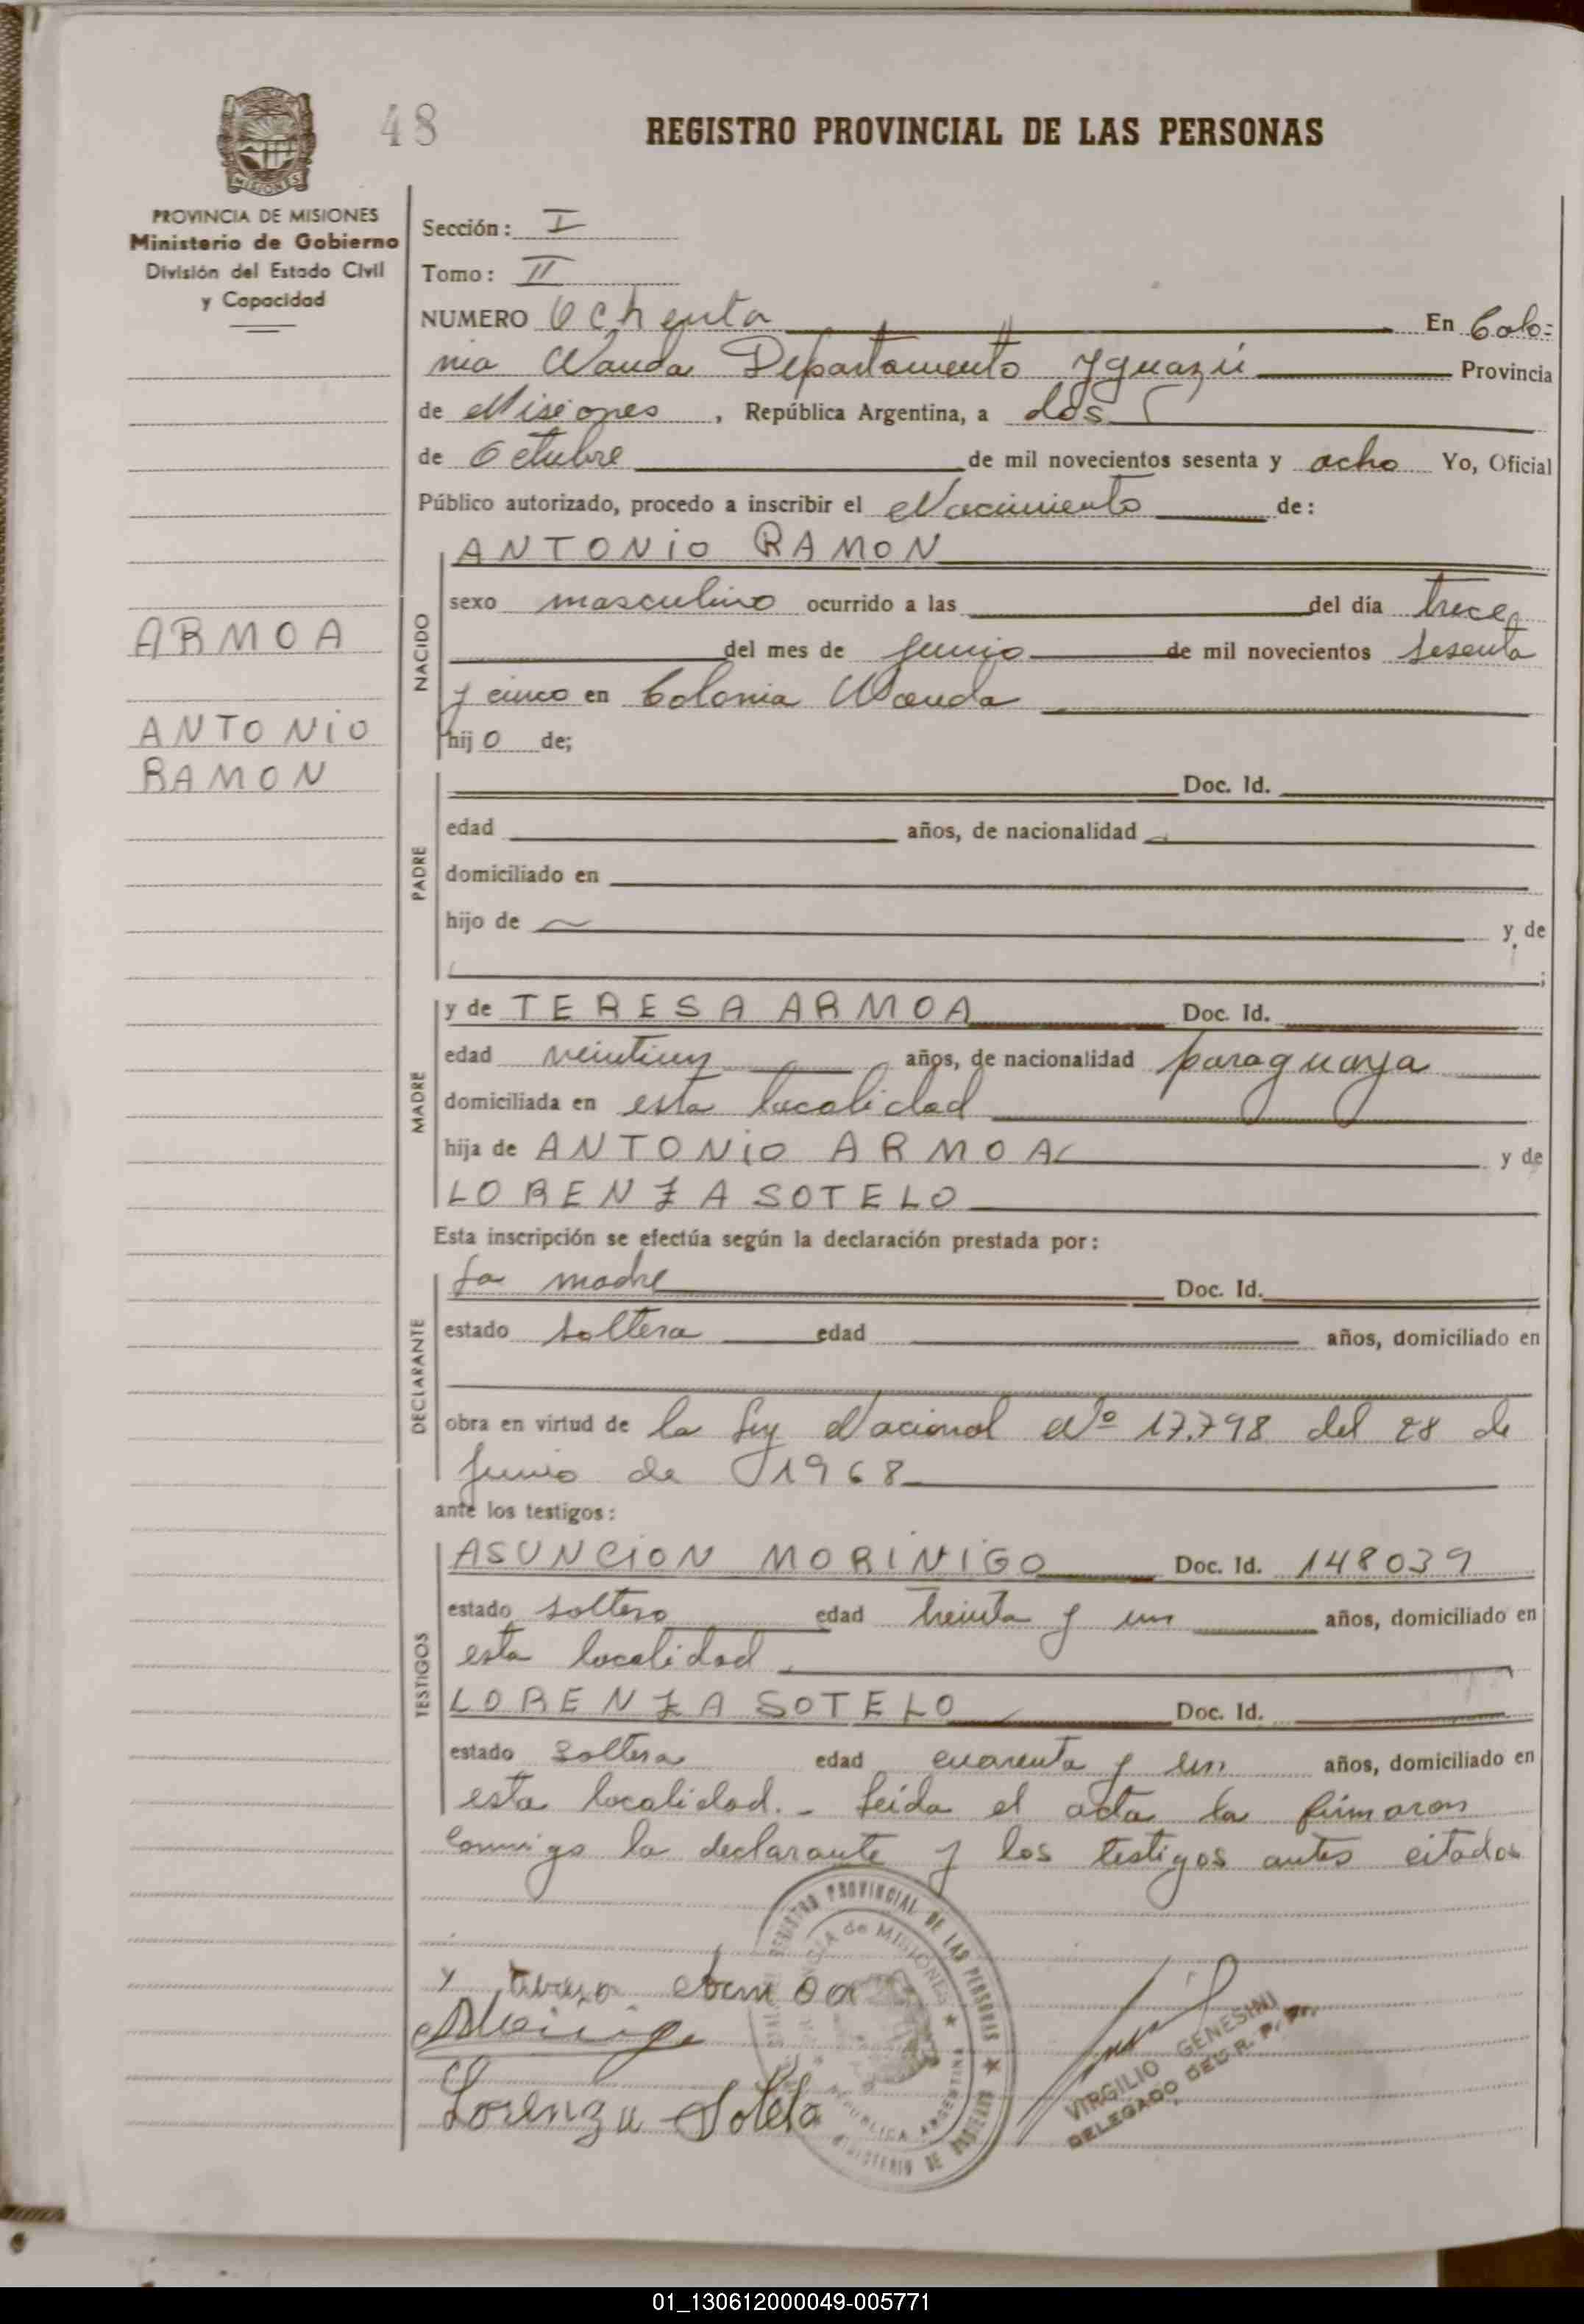 48
REGISTRO PROVINCIAL DE LAS PERSONAS
PROVINCIA DE MISIONES
Ministerio de Gobierno
División del Estado Civil
y Capacidad
ARMOA
ANTONIO
RAMON
Sección: I
Tomo: II
NUMERO Ochenta En Colo=
nia Wanda Departamento Yguazú Provincia
de Misiones, República Argentina, a dos
de Octubre de mil novecientos sesenta y ocho Yo, Oficial
Público autorizado, procedo a inscribir el Nacimiento de:
NACIDO
ANTONIO RAMON
sexo masculino ocurrido a las del día trece
del mes de Junio de mil novecientos sesenta
y cinco en Colonia Wanda
hijo de;
PADRE
Doc. Id.
edad años, de nacionalidad
domiciliado en
hijo de y de
;
MADRE
y de TERESA ARMOA Doc. Id.
edad veintiun años, de nacionalidad paraguaya
domiciliada en esta localidad
hija de ANTONIO ARMOA y de
LORENZA SOTELO
Esta inscripción se efectúa según la declaración prestada por:
DECLARANTE
La madre Doc. Id.
estado soltera edad años, domiciliado en
obra en virtud de la Ley Nacional Nº 17.798 del 28 de
Junio de 1968
ante los testigos:
TESTIGOS
ASUNCION MORINIGO Doc. Id. 148039
estado soltero edad treinta y un años, domiciliado en
esta localidad
LORENZA SOTELO Doc. Id.
estado soltera edad cuarenta y un años, domiciliado en
esta localidad.- Leída el acta la firmaron
conmigo la declarante y los testigos antes citados
REGISTRO PROVINCIAL DE LAS PERSONAS
PROVINCIA de MISIONES
REPUBLICA ARGENTINA
MINISTERIO DE GOBIERNO
Lorenza Sotelo
VIRGILIO GENESINI
DELEGADO DEL R. P. P.
01_130612000049-005771